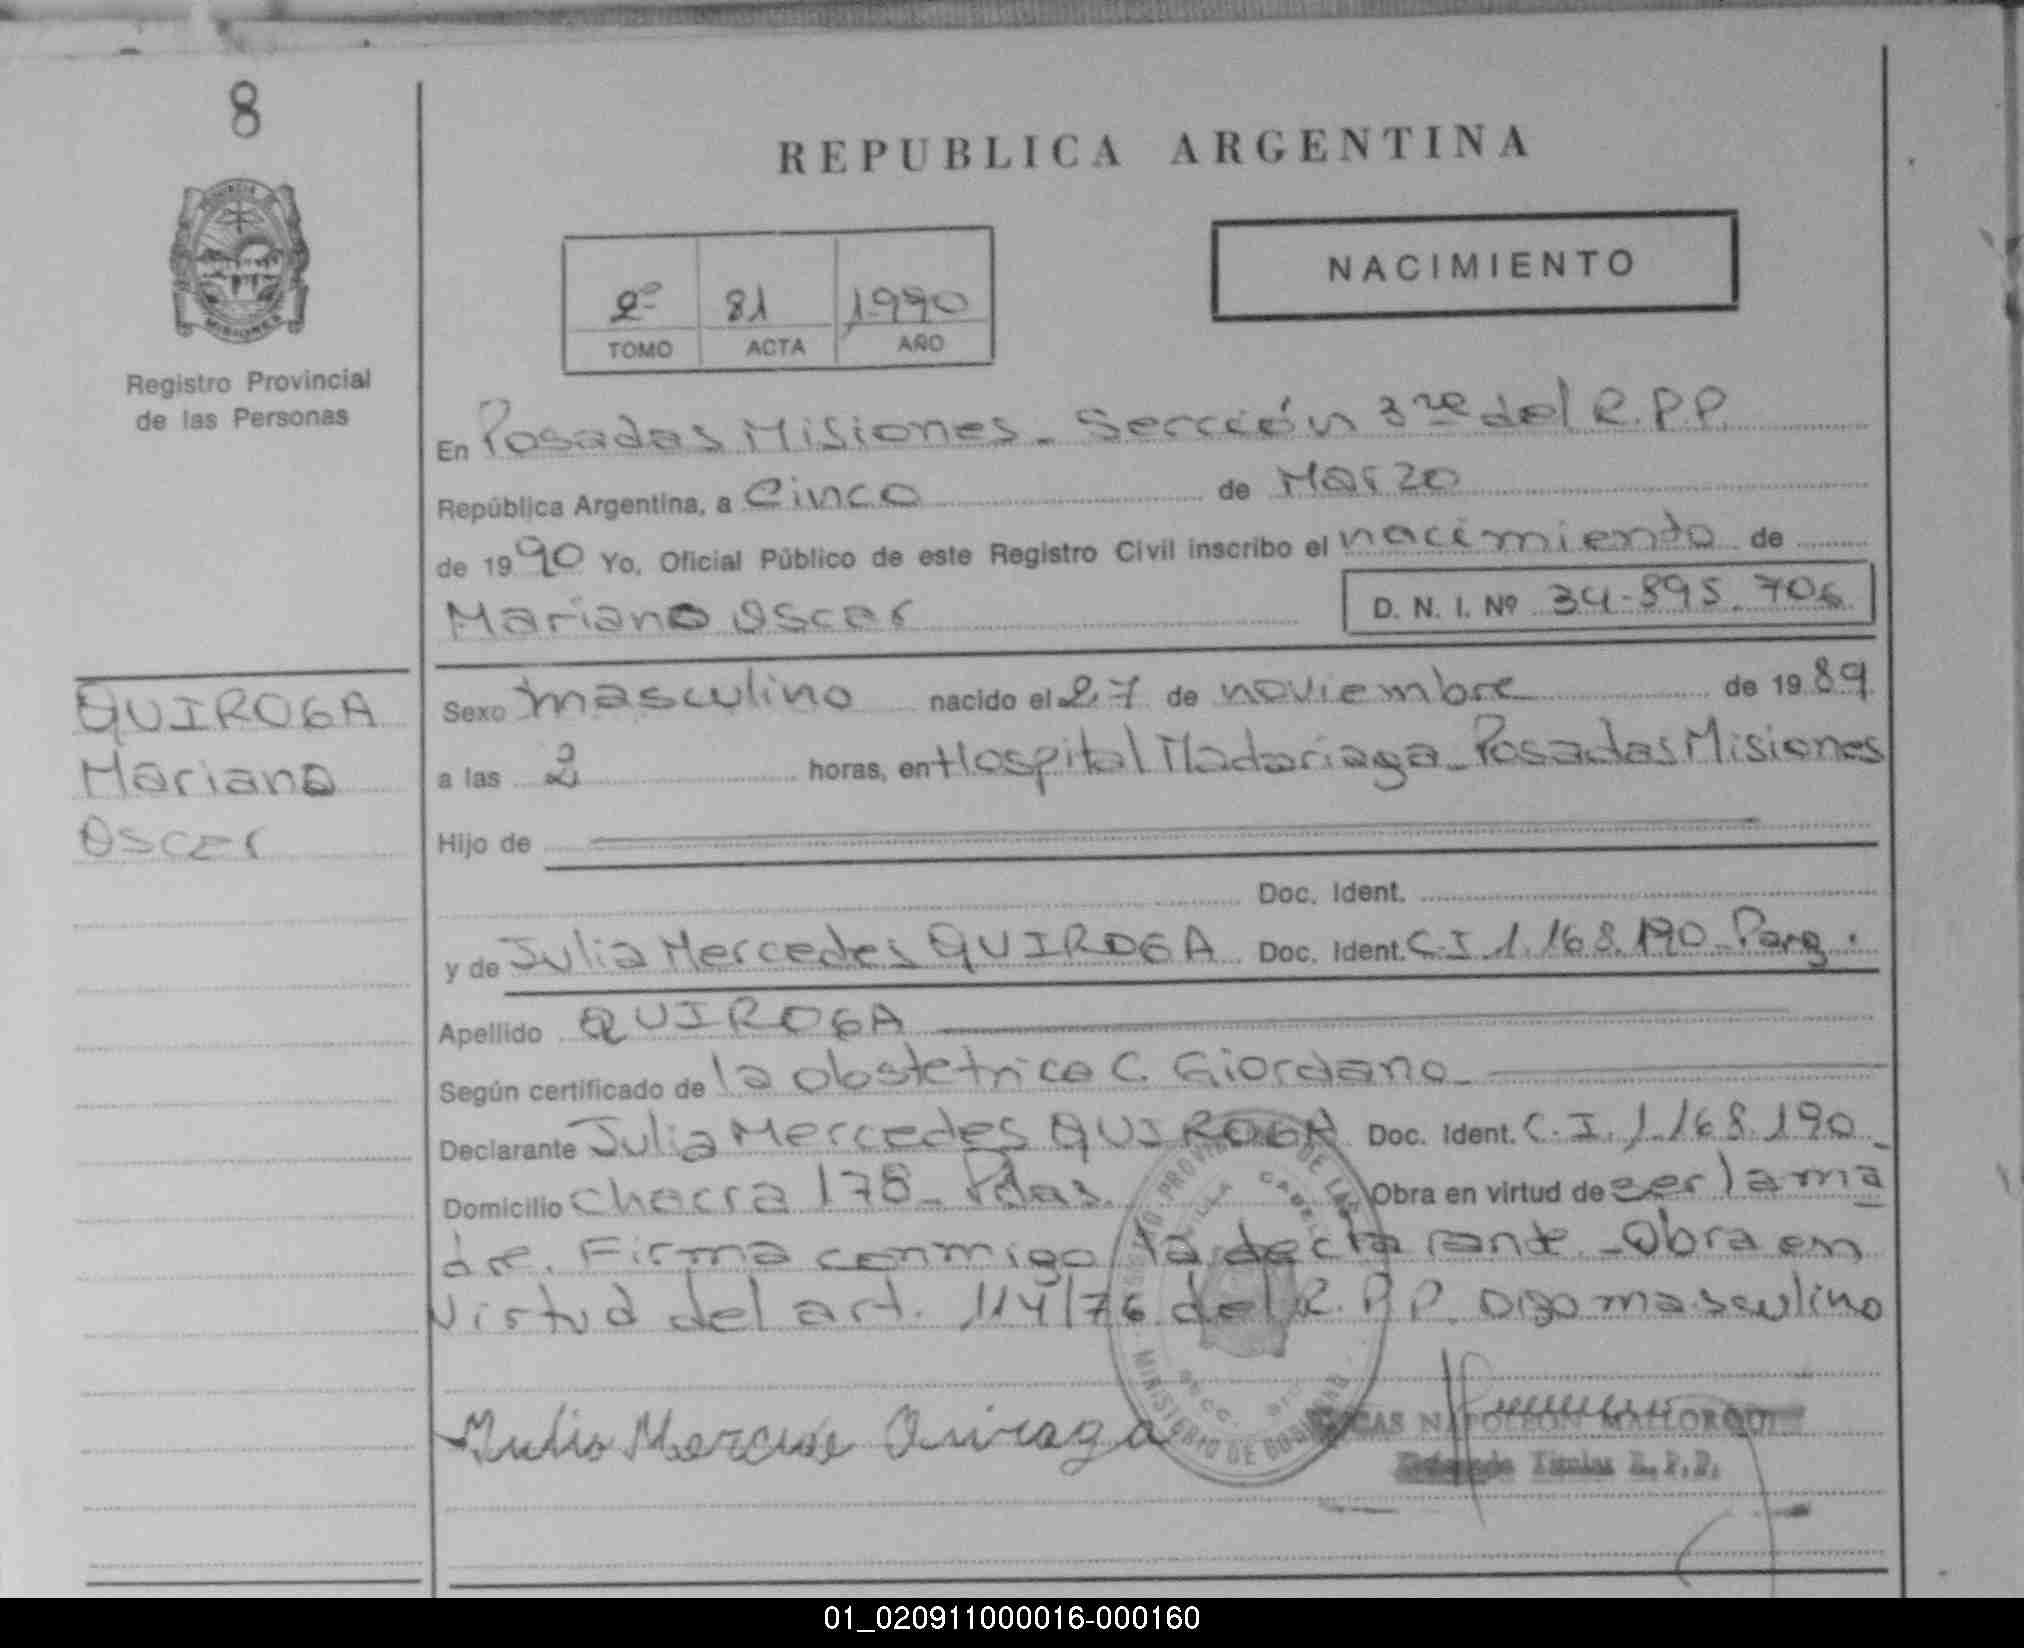 8
REPUBLICA ARGENTINA
NACIMIENTO
2º 81 1990
TOMO ACTA AÑO
MISIONES
Registro Provincial
de las Personas
En Posadas Misiones - Sercción 3ra del R.P.P.
República Argentina, a Cinco de Marzo
de 1990 Yo, Oficial Público de este Registro Civil inscribo el nacimiento de
Mariano Oscar D. N. I. Nº 34-895.706
QUIROGA
Mariano
Oscar
Sexo masculino nacido el 27 de noviembre de 1989
a las 2 horas, en Hospital Madariaga - Posadas Misiones
Hijo de
Doc. Ident.
y de Julia Mercedes QUIROGA Doc. Ident. C.I 1.168.190 - Parg.
Apellido QUIROGA
Según certificado de la obstetrica C. Giordano
Declarante Julia Mercedes QUIROGA Doc. Ident. C.I. 1.168.190
Domicilio chacra 178 - Pdas. Obra en virtud de ser la ma
dre. Firma conmigo la declarante - Obra en
virtud del art. 114/76 del R.P.P. Digo masculino
MINISTERIO DE GOBIERNO
Julia Mercede Quiroga
NAPOLEON MALLORQUI
Titular R.P.P.
01_020911000016-000160